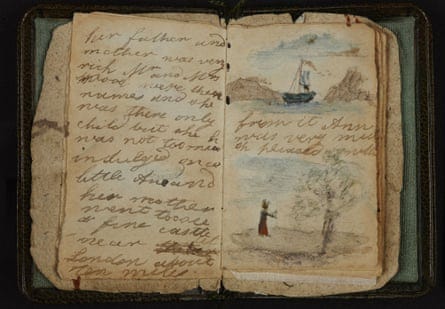 her father and
mother was very
rich Mr and Mrs
Wood were their
names and she
was there only
child but she
was not to much
indulged once
little Ann and
her mother
went to see
a fine castle
near
London about
ten miles
from it Ann
was very mu
ch pleased with